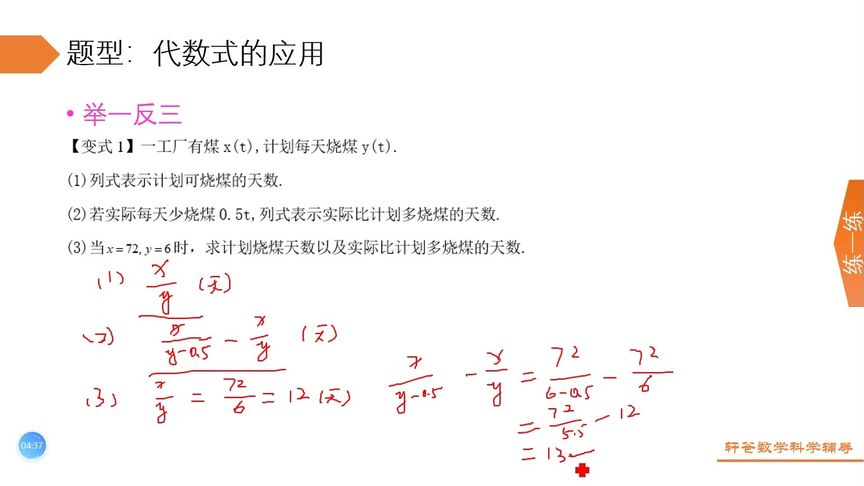 题型：代数式的应用
• 举一反三
【变式1】一工厂有煤 x(t),计划每天烧煤 y(t).
(1)列式表示计划可烧煤的天数.
(2)若实际每天少烧煤 0.5t,列式表示实际比计划多烧煤的天数.
(3)当x=72, y=6时，求计划烧煤天数以及实际比计划多烧煤的天数.
练一练
(1) x/y (天)
(2) x/(y-0.5) - x/y (天)
(3) x/y = 72/6 = 12 (天)
x/(y-0.5) - x/y = 72/(6-0.5) - 72/6
= 72/5.5 - 12
= 13
04:37
轩爸数学科学辅导